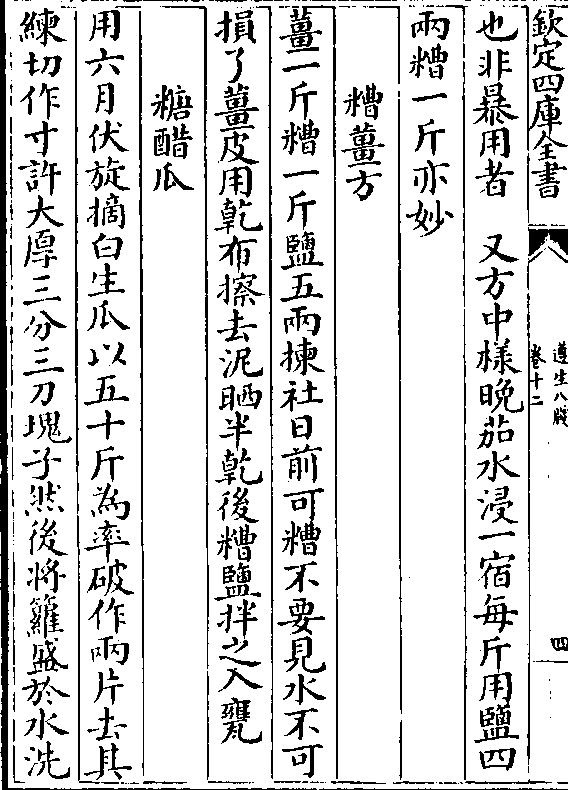 欽定四庫全書
遵生八牋
卷十二
四
也非暴用者　又方中樣晚茄水浸一宿每斤用鹽四
兩糟一斤亦妙
糟薑方
薑一斤糟一斤鹽五兩揀社日前可糟不要見水不可
損了薑皮用乾布擦去泥晒半乾後糟鹽拌之入甕
糖醋瓜
用六月伏旋摘白生瓜以五十斤為率破作兩片去其
練切作寸許大厚三分三刀塊子然後將籮盛於水洗